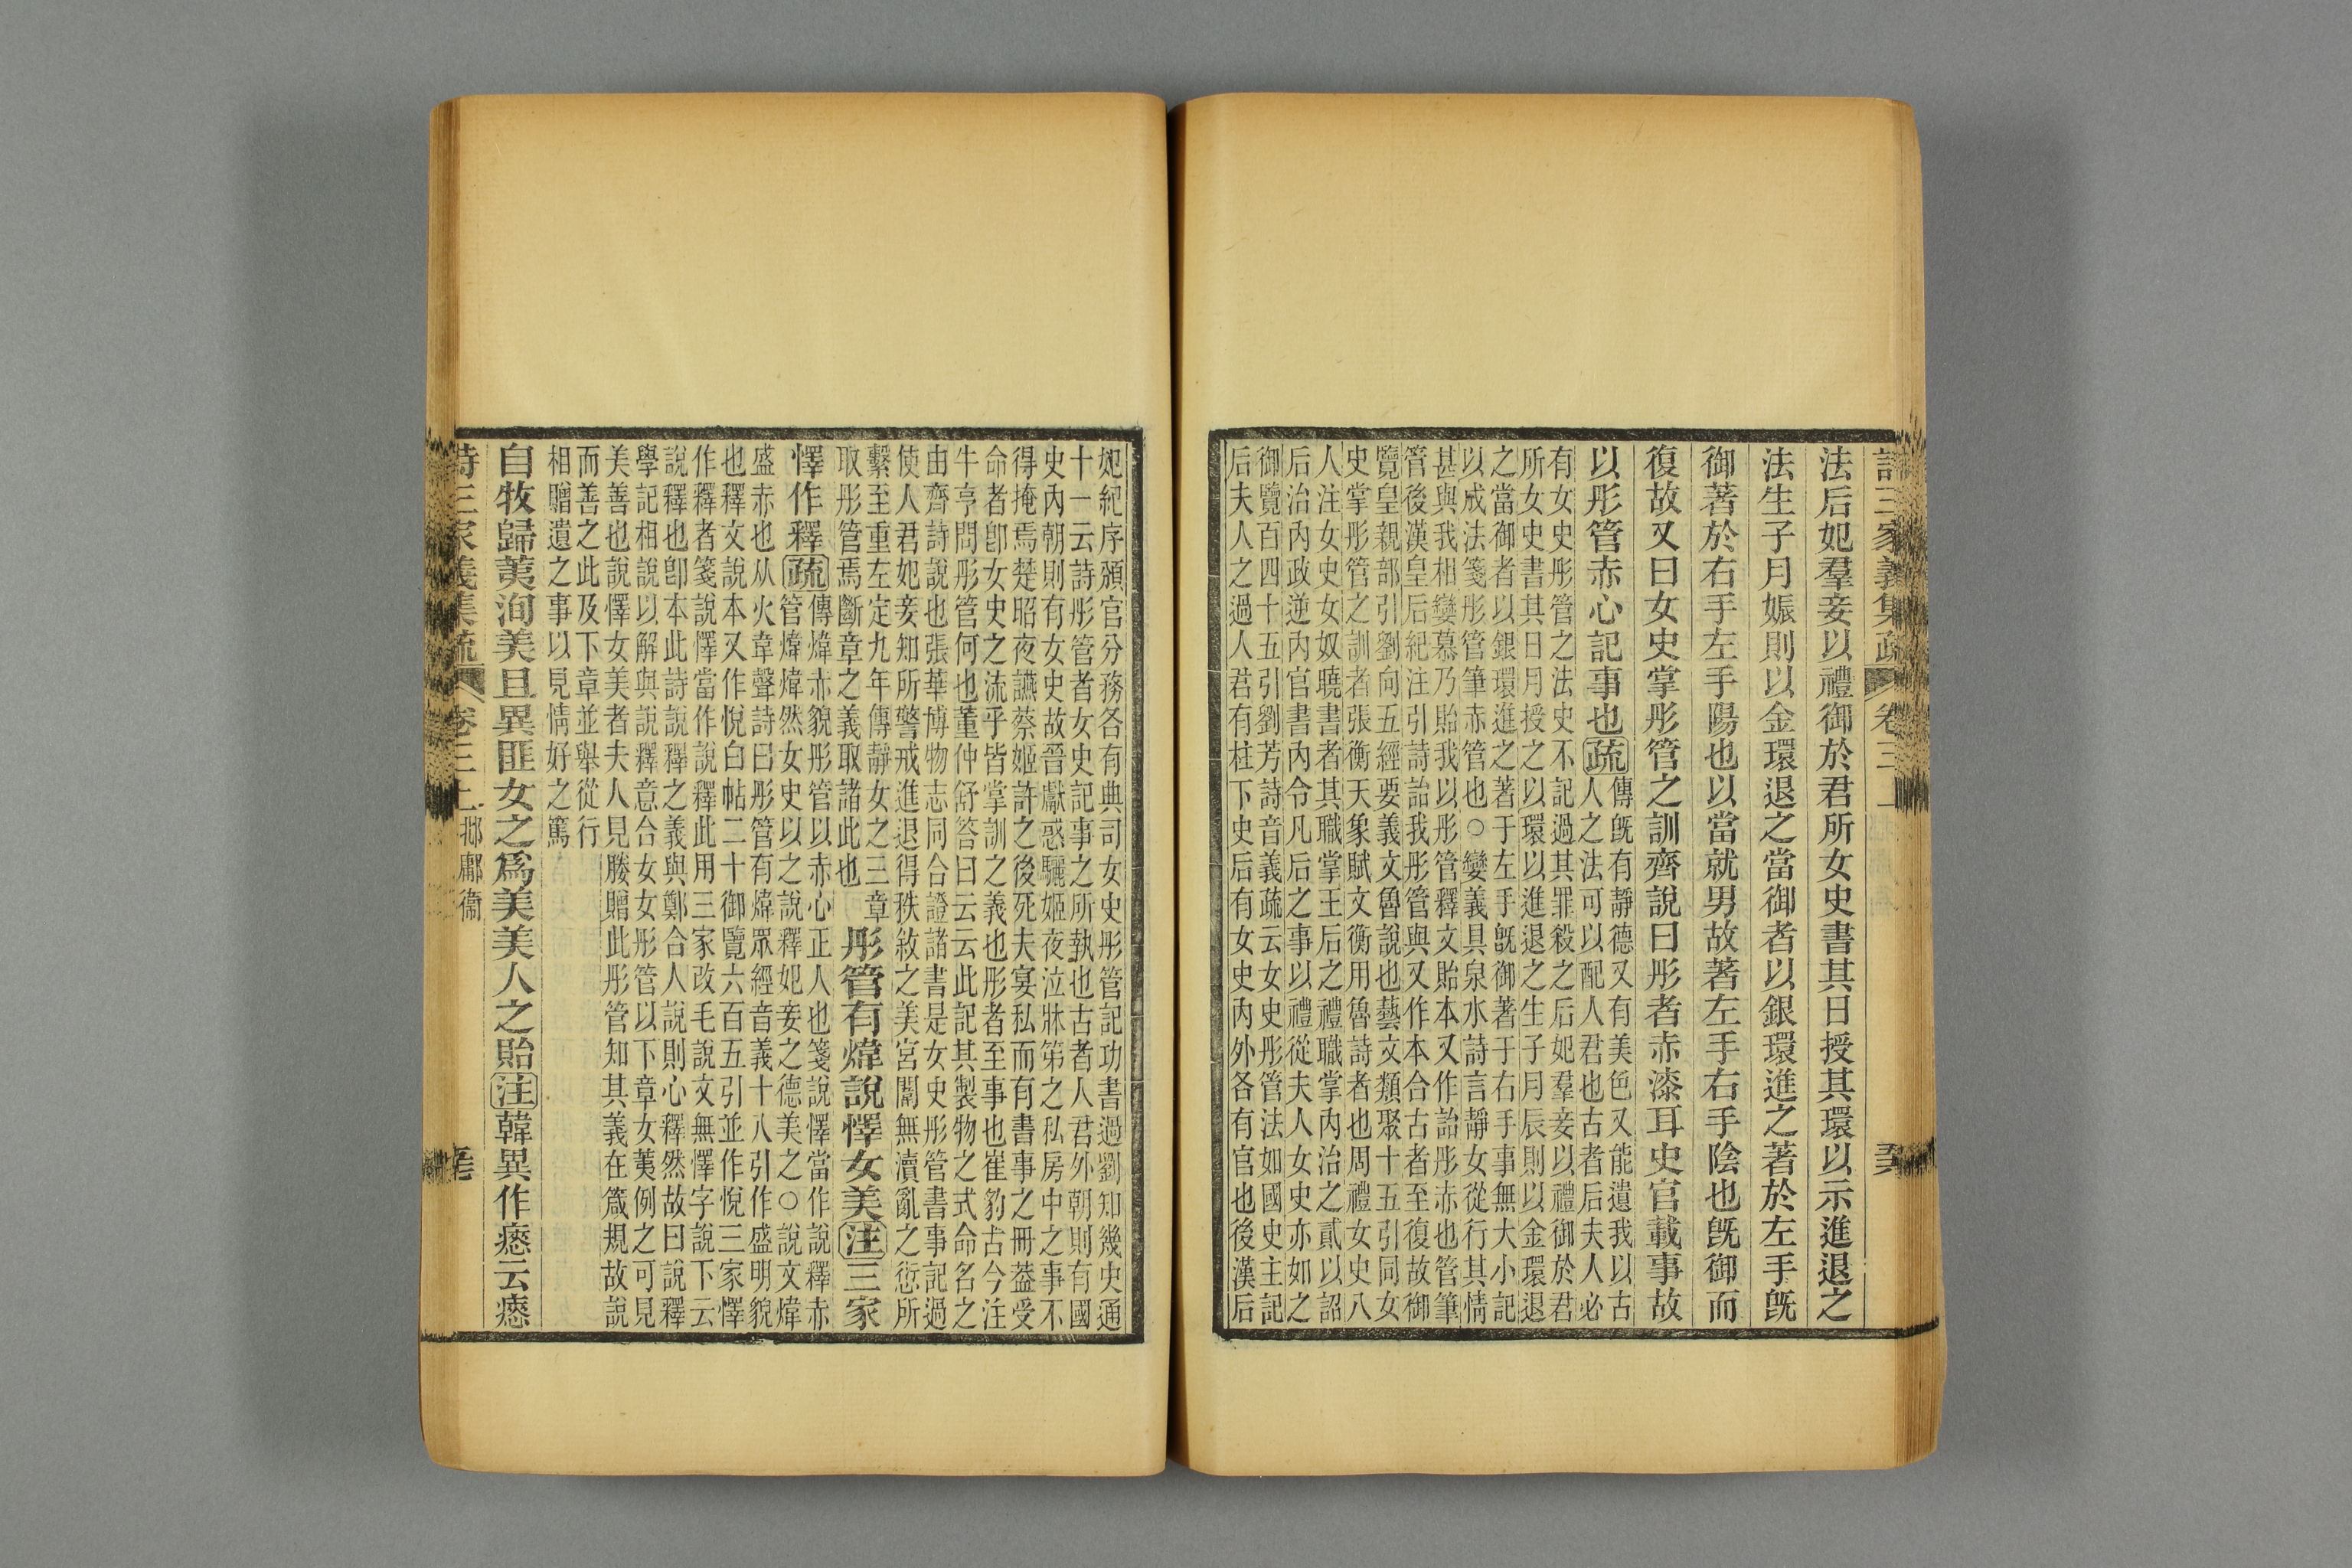 詩三家義集疏 卷三上
法后妃羣妾以禮御於君所女史書其日授其環以示進退之
法生子月娠則以金環退之當御者以銀環進之著於左手旣
御著於右手左手陽也以當就男故著左手右手陰也旣御而
復故又曰女史掌彤管之訓齊說曰彤者赤漆耳史官載事故
以彤管赤心記事也疏傳旣有靜德又有美色又能遺我以古
人之法可以配人君也古者后夫人必
有女史彤管之法史不記過其罪殺之后妃羣妾以禮御於君
所女史書其日月授之以環以進退之生子月辰則以金環退
之當御者以銀環進之著于左手旣御著于右手事無大小記
以成法箋彤管筆赤管也○孌義具泉水詩言靜女從行其情
甚與我相孌慕乃貽我以彤管釋文貽本又作詒彤赤也管筆
管後漢皇后紀注引詩詒我彤管與又作本合古者至復故御
覽皇親部引劉向五經要義文魯說也藝文類聚十五引同女
史掌彤管之訓者張衡天象賦文衡用魯詩者也周禮女史八
人注女史女奴曉書者其職掌王后之禮職掌內治之貳以詔
后治內政逆內官書內令凡后之事以禮從夫人女史亦如之
御覽百四十五引劉芳詩音義疏云女史彤管法如國史主記
后夫人之過人君有柱下史后有女史內外各有官也後漢后
妃紀序頒官分務各有典司女史彤管記功書過劉知幾史通
十一云詩彤管者女史記事之所執也古者人君外朝則有國
史內朝則有女史故晉獻惑驪姬夜泣牀笫之私房中之事不
得掩焉楚昭夜讌蔡姬許之後死夫宴私而有書事之冊蓋受
命者卽女史之流乎皆掌訓之義也彤者至事也崔豹古今注
牛亨問彤管何也董仲舒答曰云云此記其製物之式命名之
由齊詩說也張華博物志同合證諸書是女史彤管書事記過
使人君妃妾知所警戒進退得秩敘之美宮闈無瀆亂之愆所
繫至重左定九年傳靜女之三章
取彤管焉斷章之義取諸此也彤管有煒說懌女美注三家
懌作釋疏傳煒赤貌彤管以赤心正人也箋說懌當作說釋赤
管煒煒然女史以之說釋妃妾之德美之○說文煒
盛赤也从火韋聲詩曰彤管有煒眾經音義十八引作盛明貌
也釋文說本又作悅白帖二十御覽六百五引並作悅三家懌
作釋者箋說懌當作說釋此用三家改毛說文無懌字說下云
說釋也卽本此詩說釋之義與鄭合人說則心釋然故曰說釋
學記相說以解與說釋意合女女彤管以下章女荑例之可見
美善也說懌女美者夫人見媵贈此彤管知其義在箴規故說
而善之此及下章並舉從行
相贈遺之事以見情好之篤
自牧歸荑洵美且異匪女之爲美美人之貽注韓異作瘱云瘱
詩三家義集疏 卷三上 邶鄘衞